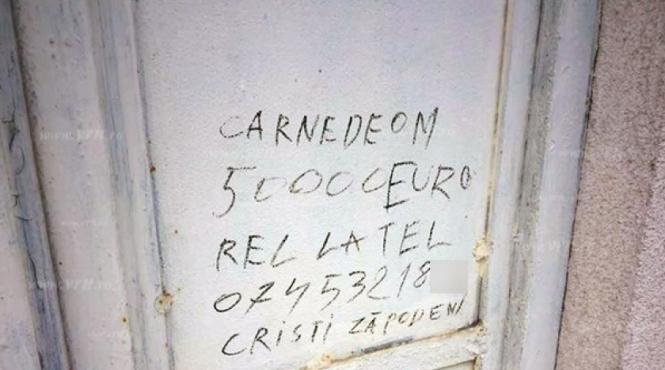 CARNEDEOM
50000EURO
REL LA TEL
07453218
CRISTI ZĂPODENI
www.VFH.ro